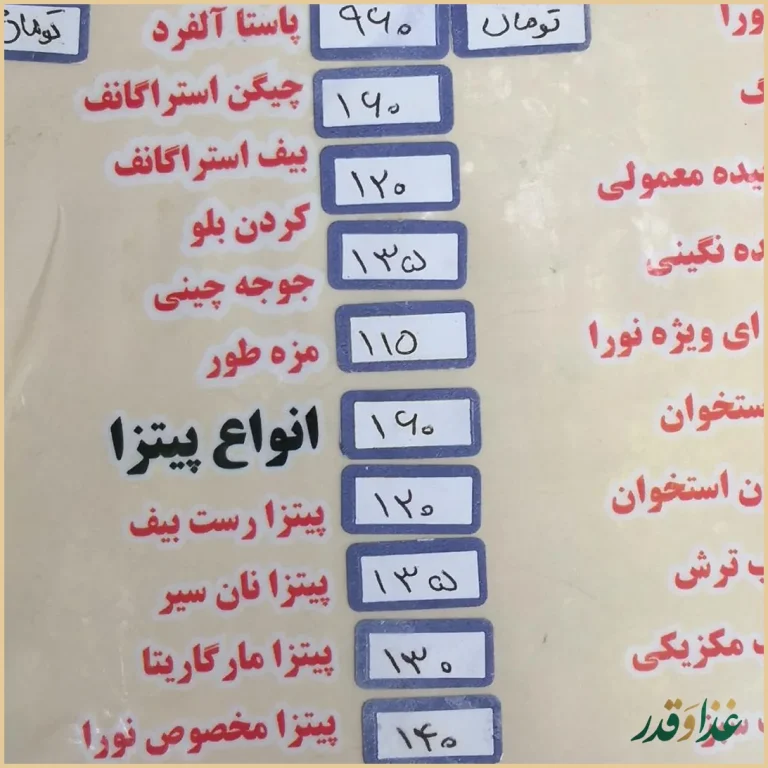 تومان
۱۶۰
معمولی ۱۲۰
نگینی ۱۳۵
ای ویژه نورا ۱۱۵
۱۶۰
استخوان ۱۲۰
ترش ۱۳۵
مکزیکی ۱۳۰
۱۴۰
تومان
پاستا آلفرد
چیگن استراگانف
بیف استراگانف
کردن بلو
جوجه چینی
مزه طور
انواع پیتزا
پیتزا رست بیف
پیتزا نان سیر
پیتزا مارگاریتا
پیتزا مخصوص نورا
غذا و قدر